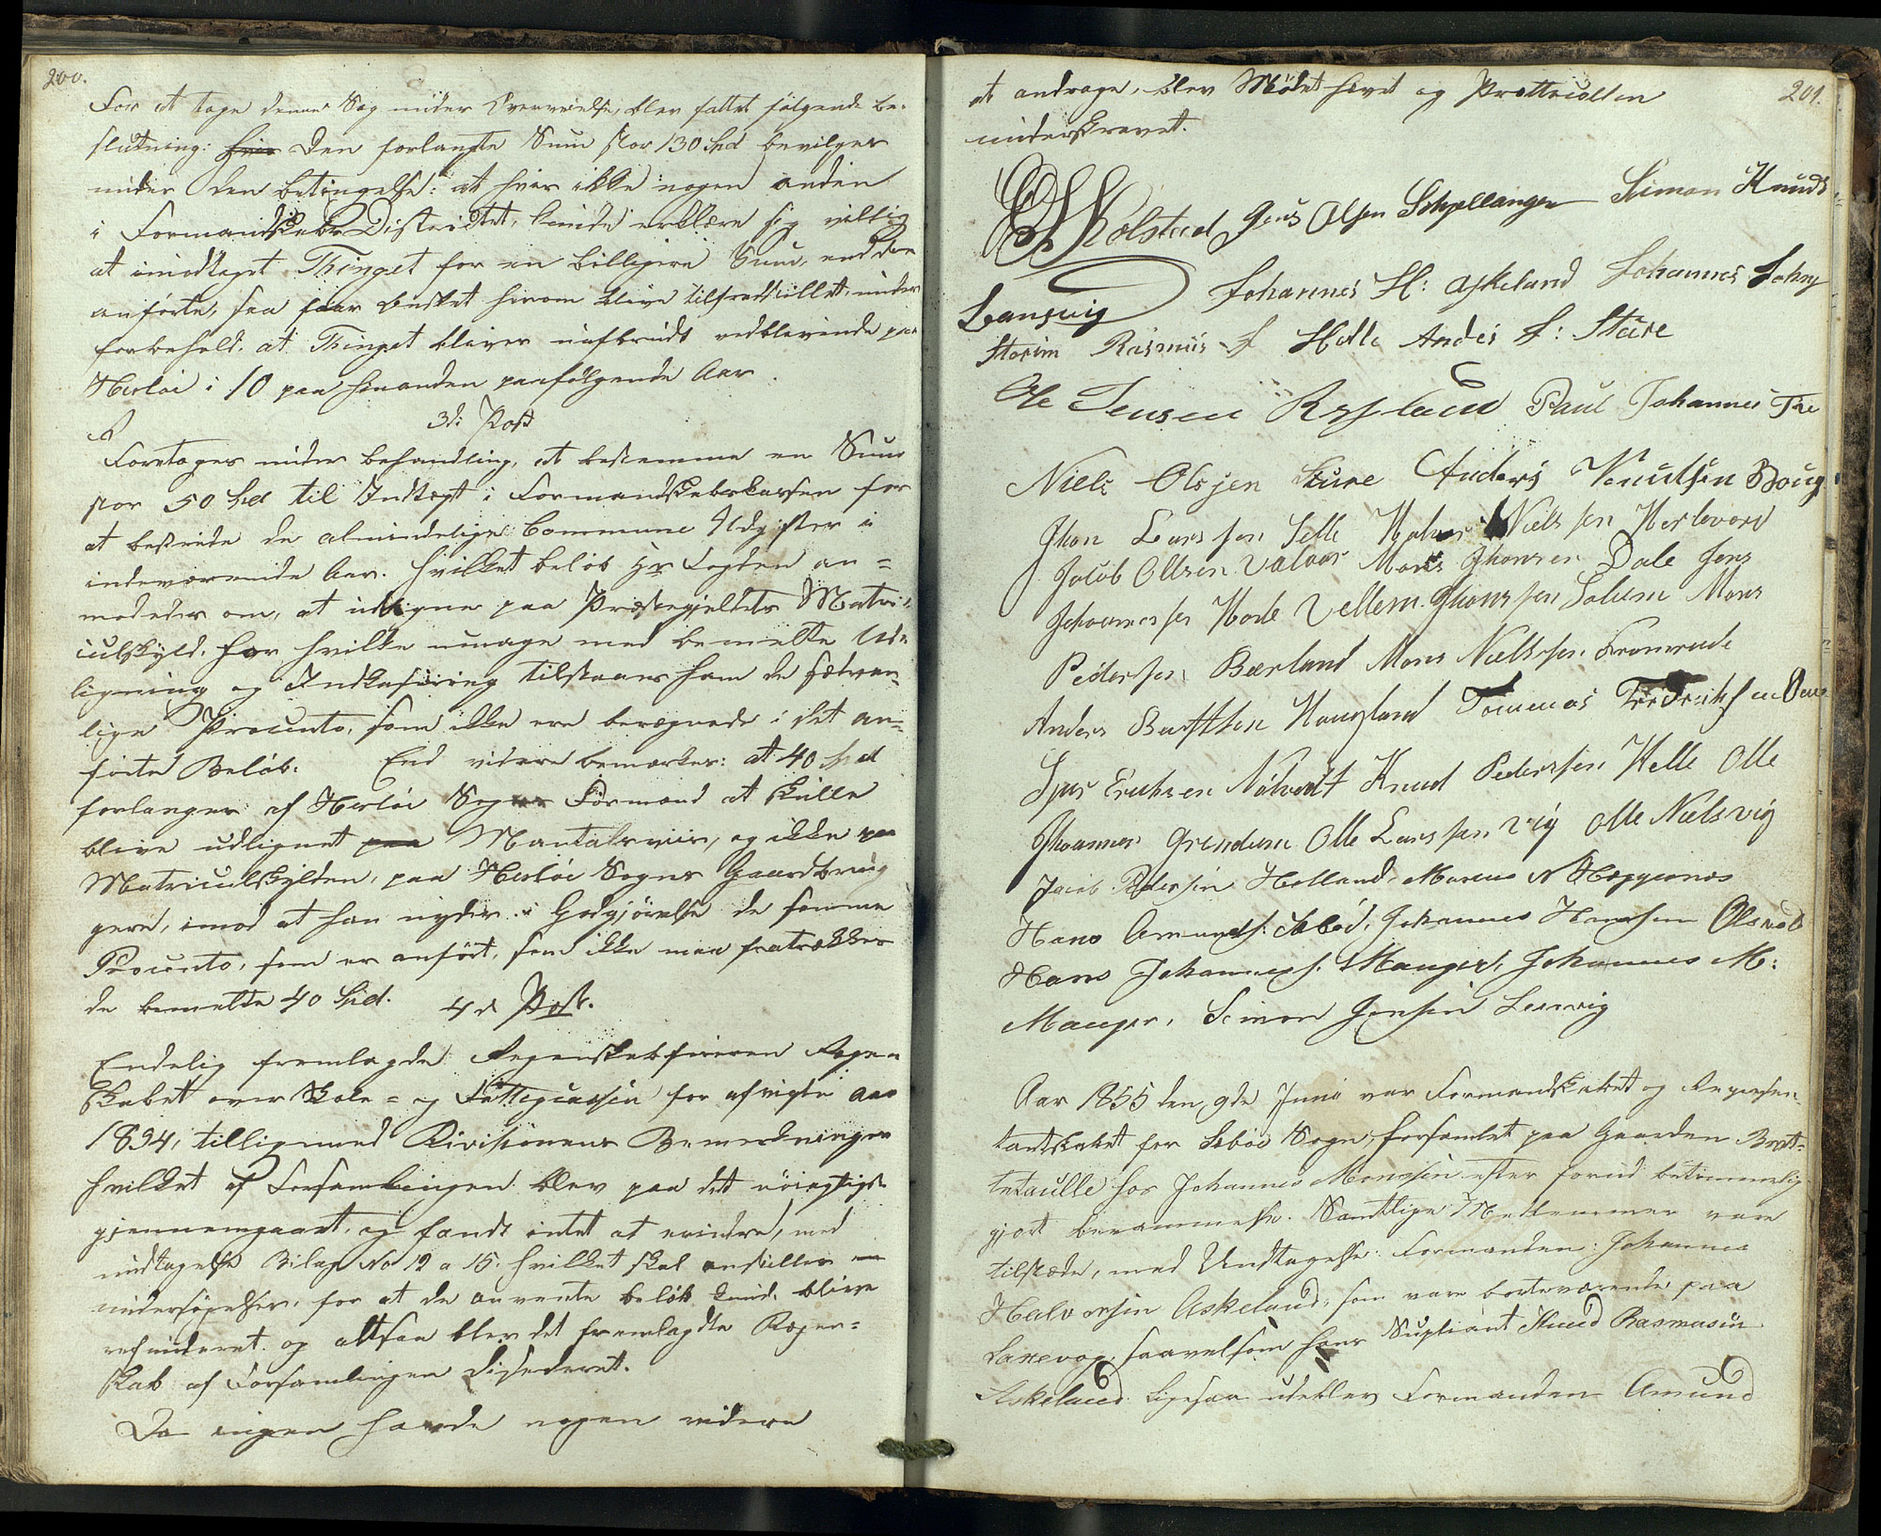 200.
For at tage denne Sag under Overveielse, blev fattet følgende be-
slutning: Den forlangte Sum stor 130 Spd bevilges
under den betingelse: at hvis ikke nogen anden
i Formandskabs Districtet, kunde erklære sig villig
at imodtaget Thinget for en billigere Sum, end den
anførte, saa faar Ønsket herom blive tilfredstillet, under
forbehold, at Tinget bliver uafbrudt vedblevende paa
Herløe i 10 paa hinanden paafølgende Aar.
3d: Post
Foretoges under behandling, at bestemme en Sum
stor 50 Spd til Indtægt i Formandskabskassen for
at bestride de almindelige Commune Udgifter i
indeværende Aar. Hvilket beløb Hr Fogden an-
modedes om, at udligne paa Præstegjeldets Matri-
culskyld. For hvilke umage med bemelte Ud-
ligning og Indkasering tilstaaes ham de sædvan-
lige Procento, som ikke ere beregnede i det an-
førte Beløb. End videre bemærkes: at 40 Spd
forlanges af Herløe Sogns Formænd at skulle
blive udlignet paa Mantalsviis, og ikke paa
Matriculskylden, paa Herløe Sogns Gaardbrug
gere, imod at han nyder i Godgjørelse de samme
Procento, som er anført, som ikke maa fratrækkes
de bemelte 40 Spd.
4de Post.
Endelig fremlagde Regenskabsføreren Regen-
skabet over Skole- og Fattigcassen for afvigte Aar
1854, tilligemed Revisionens Bemerkninger
hvilket af Forsamlingen blev paa det nøiagtigste
gjennemgaaet, og fandt intet at erindre, med
undtagelse Bilag No 12 a 15. hvilket skal anstilles
undersøgelser, for at de anvente beløb kunde blive
refunderet. og altsaa blev det fremlagdte Regen-
skab af Forsamlingen Desideret.
Da ingen havde nogen videre
201.
at andrage, blev Mødet hævet og Prottocollen
underskrevet.
Kolstad Jens Olsen Schjellanger Simon Knuds
Landsvig Johannes H: Askeland Johannes Johns
Storim Rasmus J Helle Andes J: Sture
Ole Jensen Rossland Paul Johannes Tre
Niels Olsjen Sture Anders Knutsen Boug
Jhon Lars sen Selle Halvor Niels sen Herlevær
Jacob Ollsen Valaar Mons Jhonsen Dale Jens
Johannes sen Hode Vellem Jhons sen Solem Mons
Peder sen Bærland Mons Niels sen Fromrede
Anders Haugland Tommas Fredrik sen
Erichsen Nøtvedt Knud Peder sen Helle Olle
Jhoannes Grendene Olle Lars sen Vig Olle Niels vig
Jacob Peder sen Holland, Marcus N Hæggernæs
Hans Amunds. Sæbø, Johannes Hansen Olsvol
Hans Johannes s. Manger, Johannes M:
Manger, Simon Jensen Lervig
Aar 1855 den 9de Juni var Formandskabet og Represen-
tantskabet for Sæbøe Sogn, forsamlet paa Gaarden Brat-
tetaulle hos Johannes Monssen efter forud betimmelig
gjort berammelse. Samtlige Medlemmer vare
tilstæde, med Undtagelse: Formanden: Johannes
Halvorsen Askeland, som vare bortværende paa
Lanevog, saavelsom hans Supliant Knud Rasmusen
Askeland. Ligesaa udeblev Formanden Amund